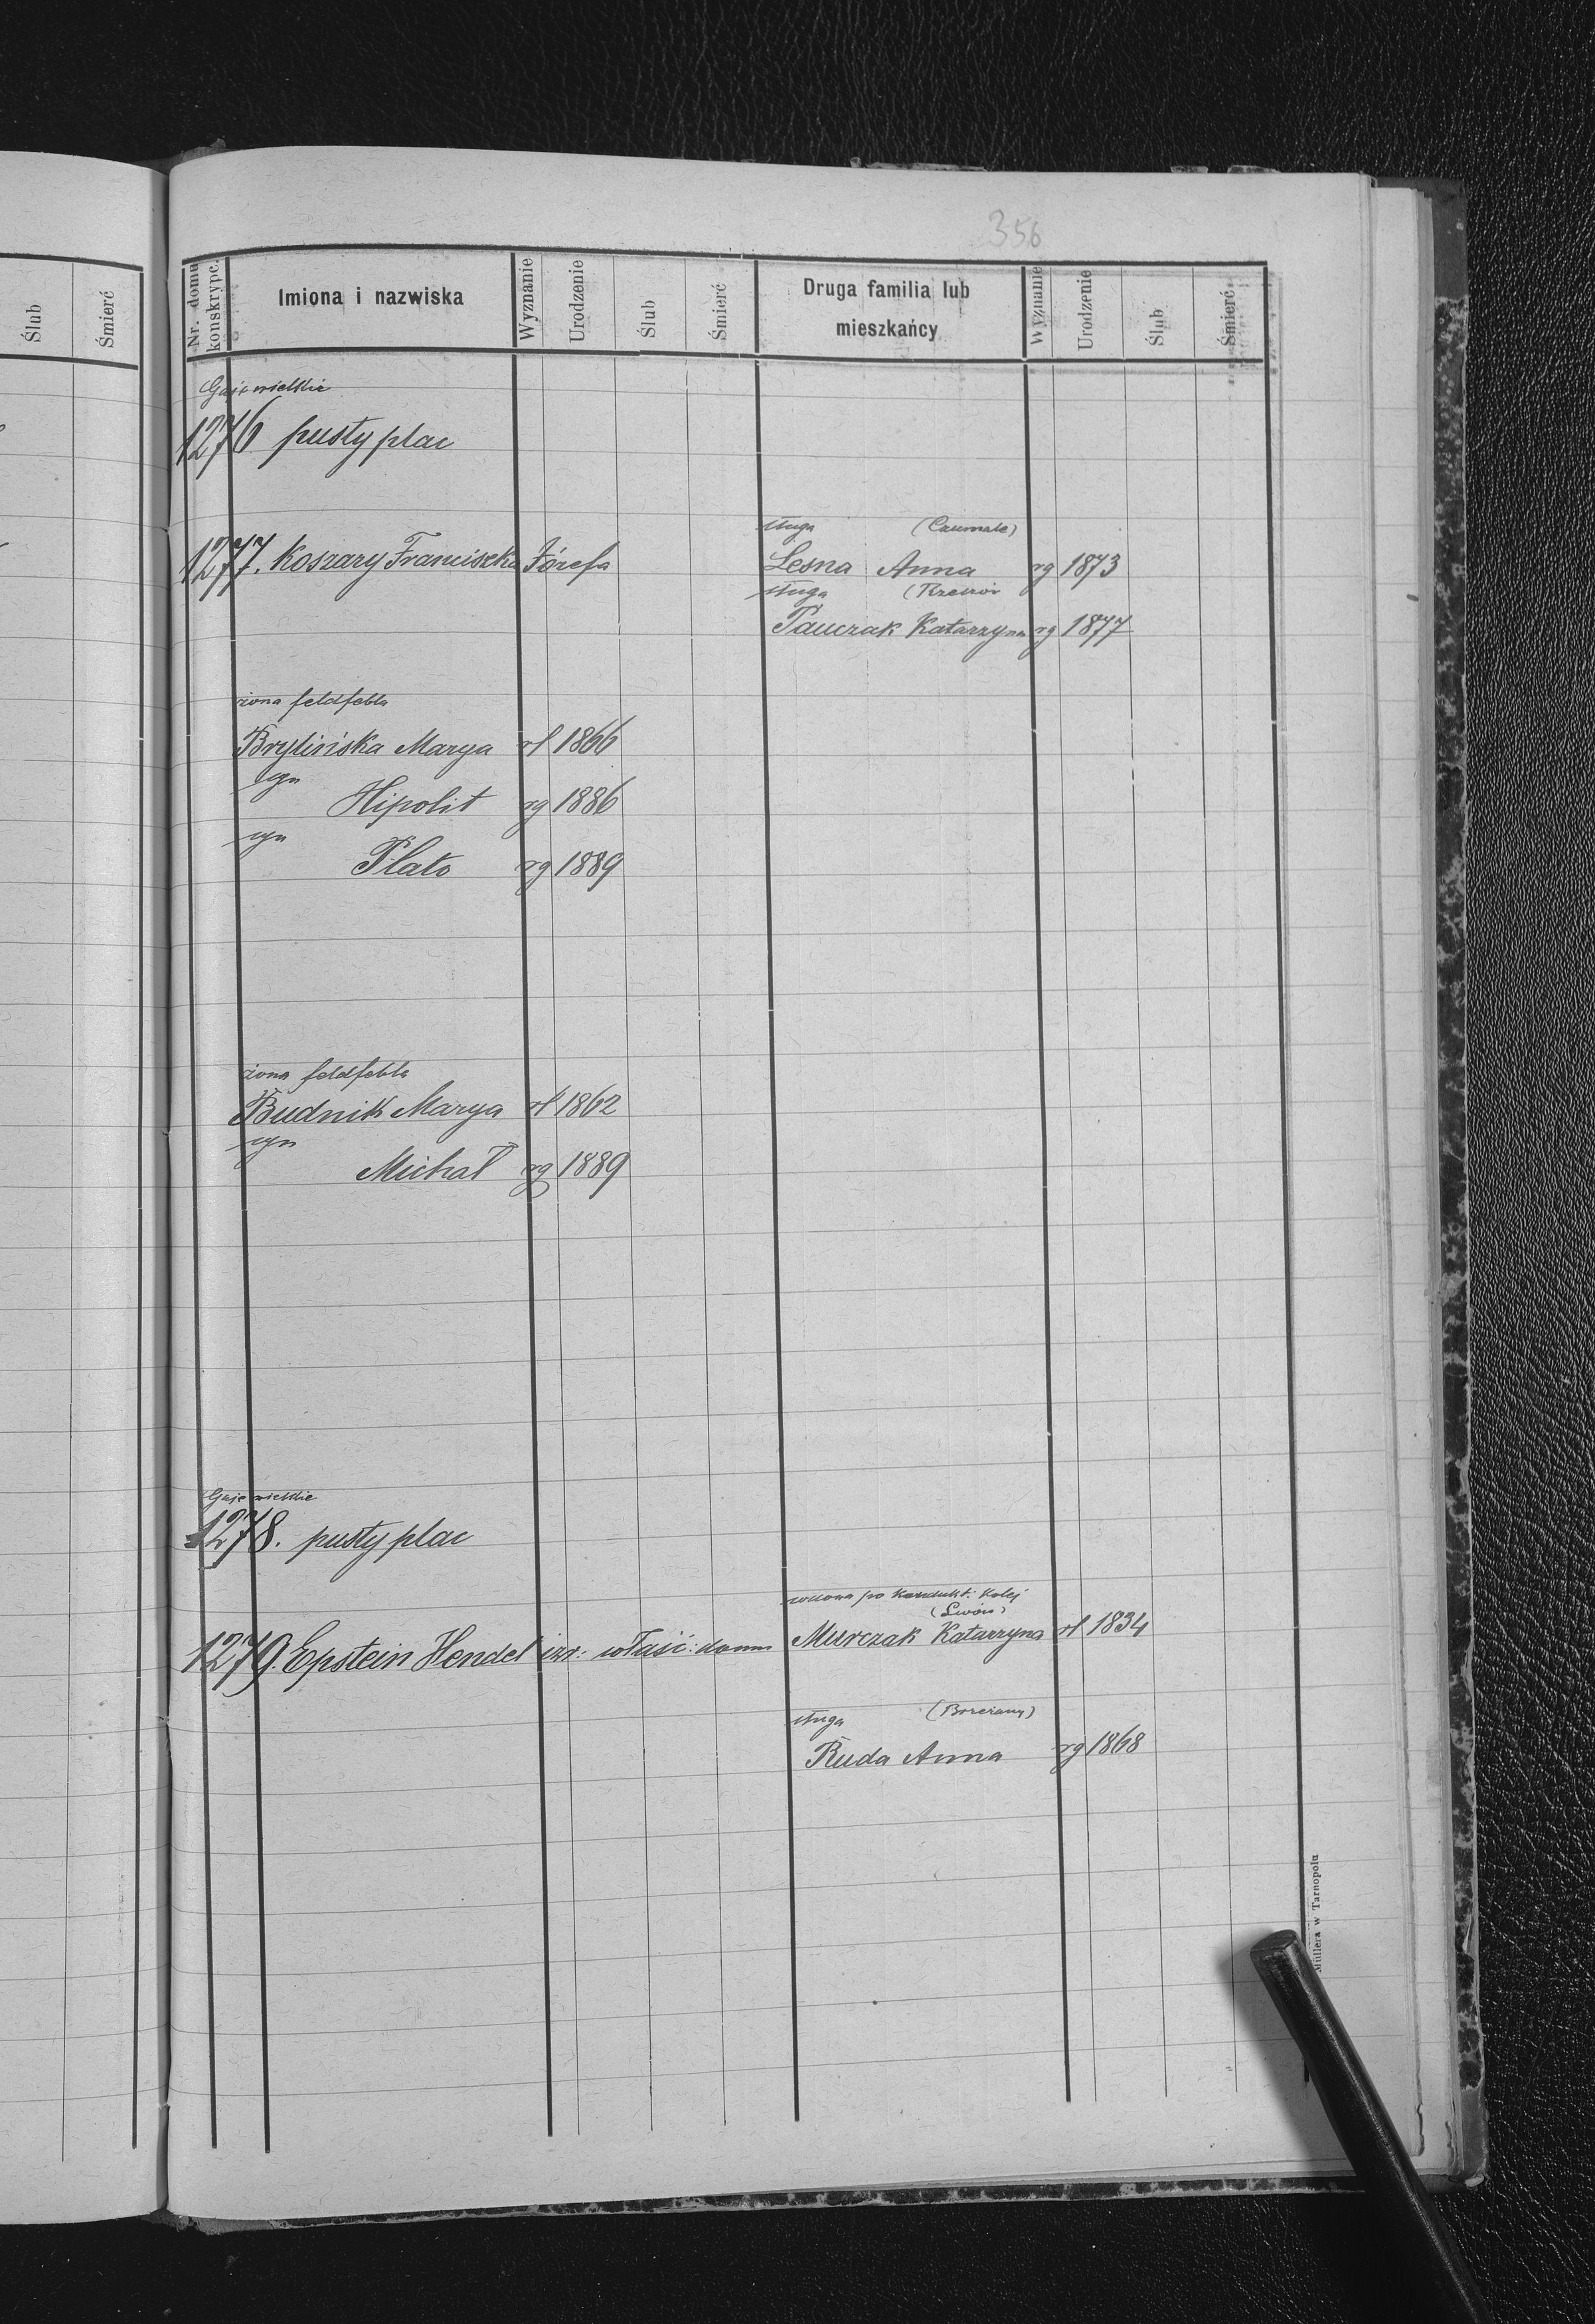 356
Ślub Śmierć
Nr. domu konskrypc. Imiona i nazwiska Wyznanie Urodzenie Ślub Śmierć Druga familia lub mieszkańcy Wyznanie Urodzenie Ślub Śmierć
Gaje wielkie
1276 pusty plac
sługa
1277. Koszary Franciszka Józefa Lesna Anna rg 1873
sługa
Pauczak Katarzyna rg 1877
żona feldfebla
Brylińska Marya rł 1866
syn
Hipolit rg 1886
syn
Plato rg 1889
żona feldfebla
Budnik Marya rł 1862
syn
Michał rg 1889
Gaje wielkie
1278. pusty plac
wdowa po kondukt: kolej
(Lwów)
1279. Epstein Hendel izr: właść: domu Murczak Katarzyna rł 1834
sługa
Ruda Anna rg 1868
Müllera w Tarnopolu